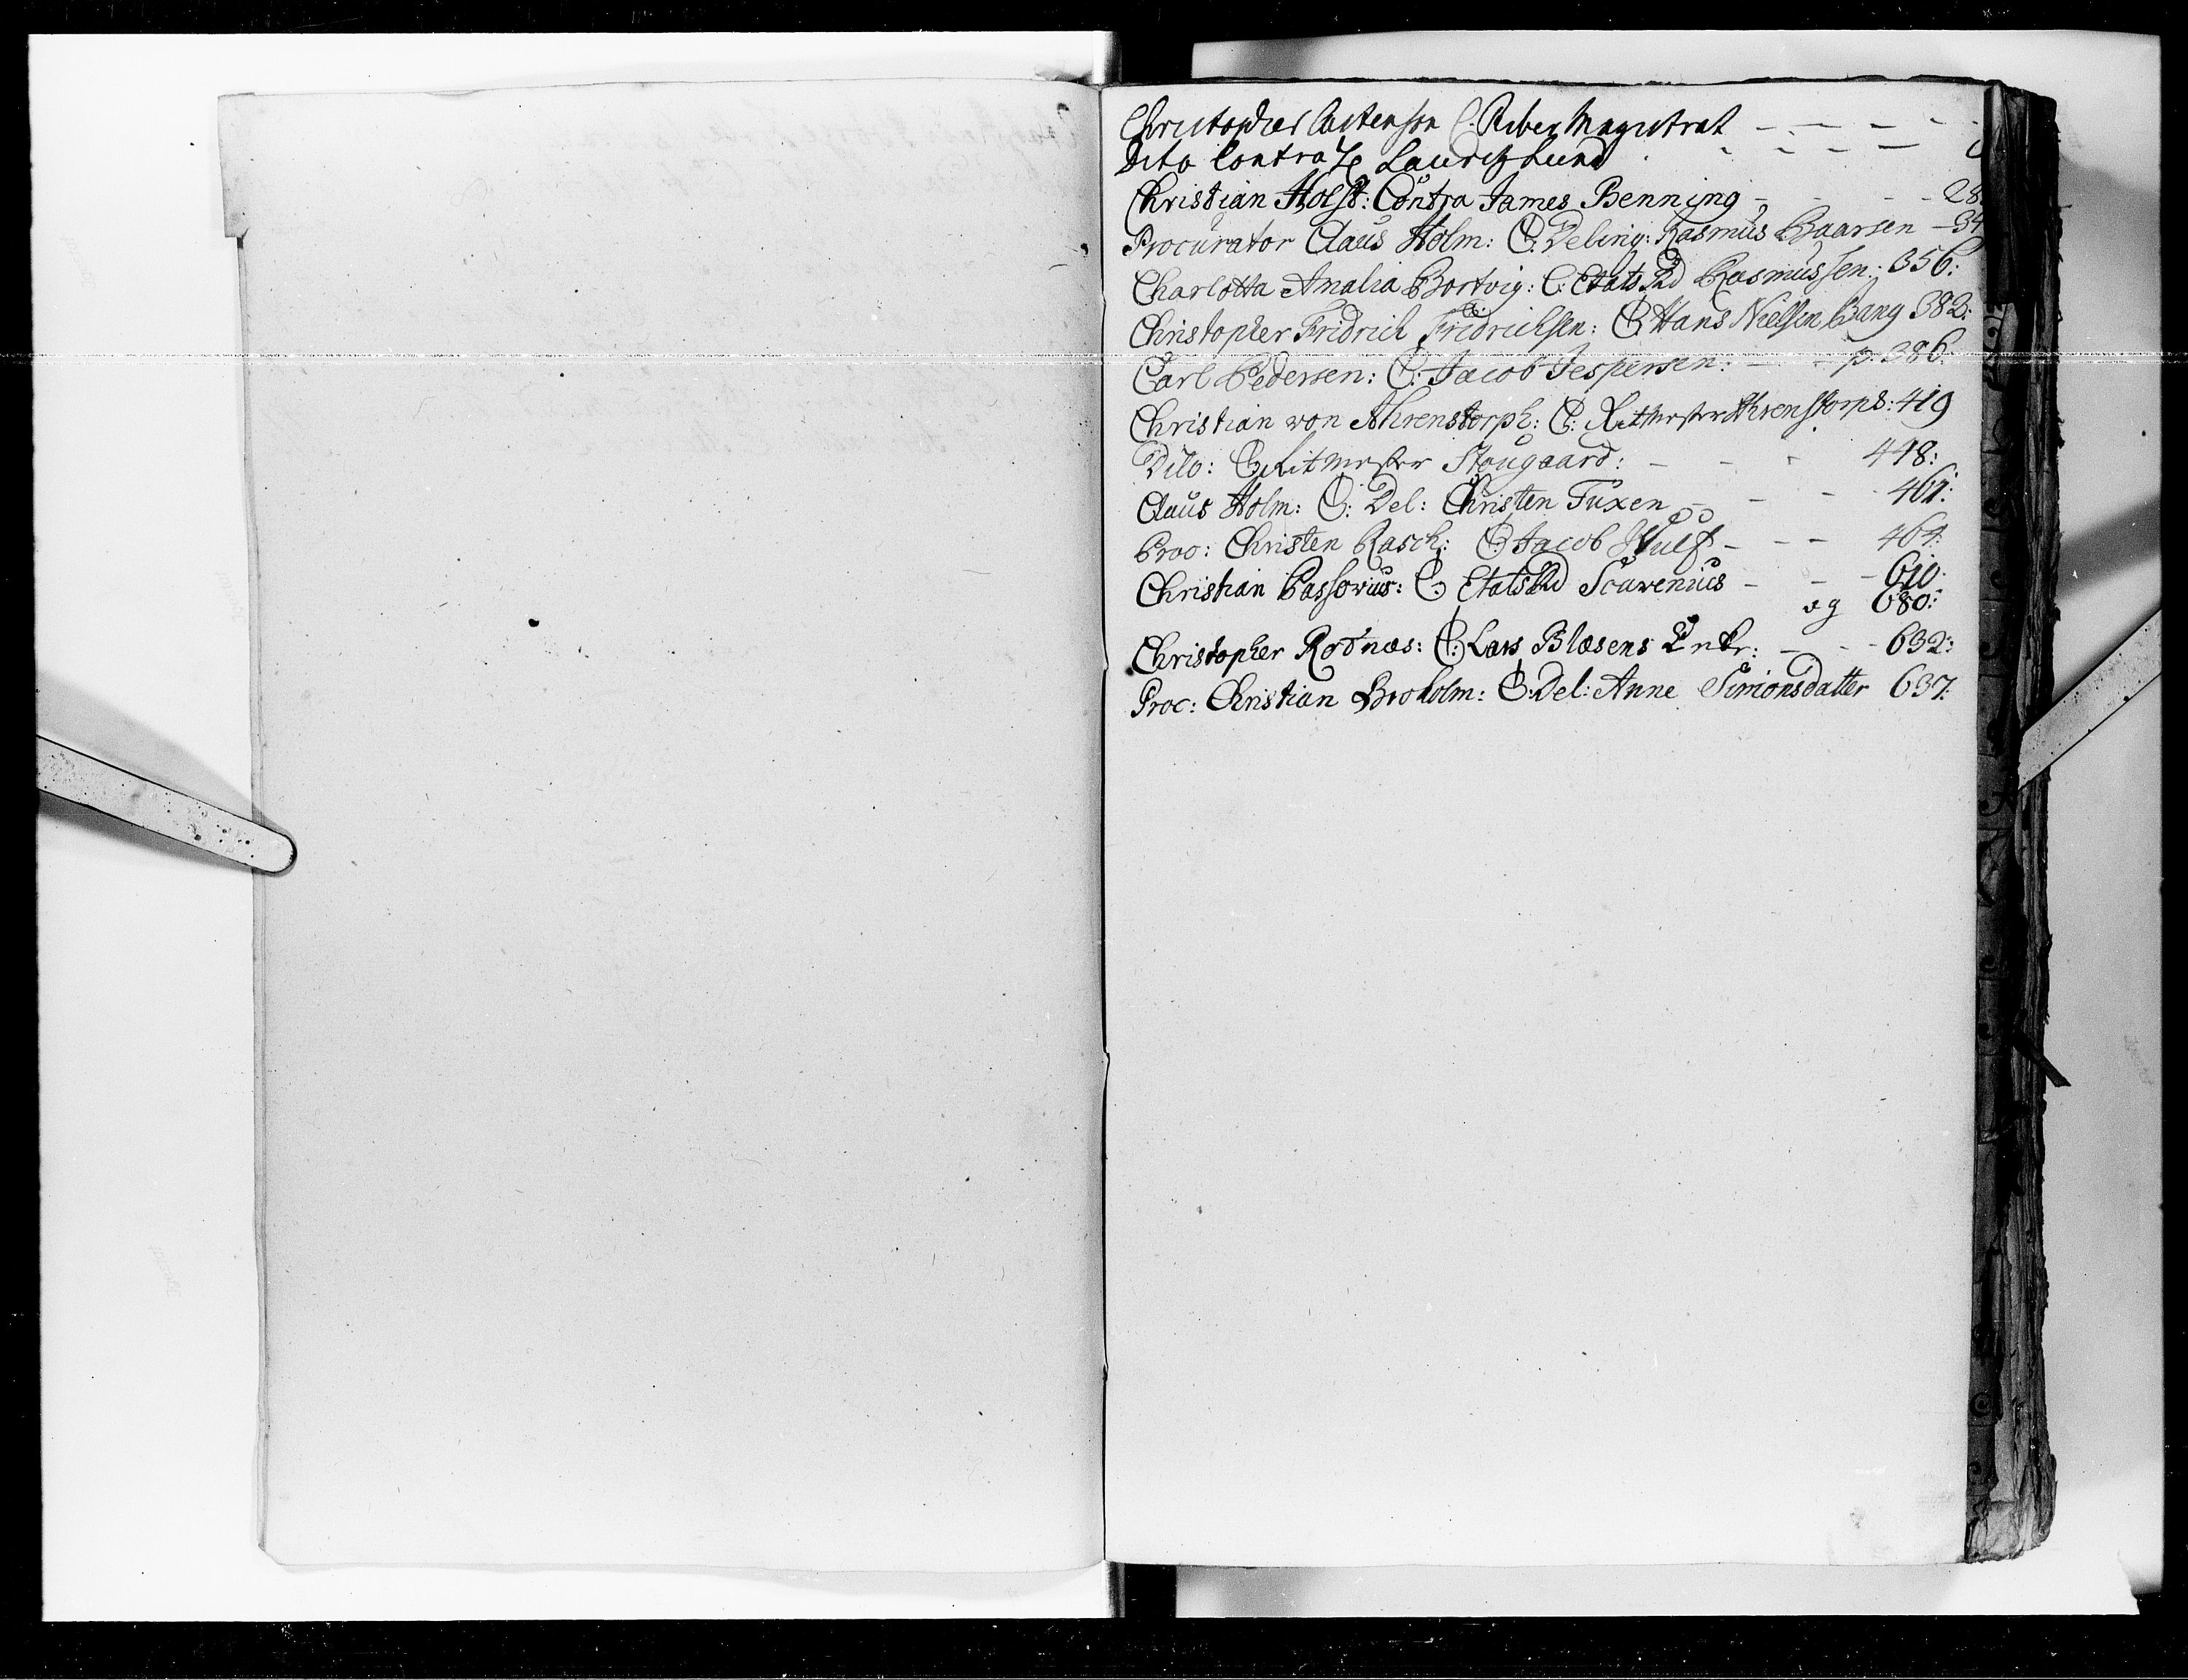 Christopher Carstensen C. Riber Magistrat
Dito Contra Hr Lauritz Lund
Christian Holst: Contra James Benning - 28
Procurator Claus Holm: C: Deling: Rasmus Baarsen - 34
Charlotta Amalia Bortvig: C: Etats Rd Rasmussen: 356:
Christopher Fridrich Fridrichsen: C: Hans Nielsen Bang 382:
Carl Pedersen: C: Jacob Jespersen: - - p: 386:
Christian von Ahrenstorph: C: Ritmester Ahrenstorph: 419
Dito: C: Ritmester Stougaard: - - - 448:
Claus Holm: C: Del: Christen Tuxen - - - 461:
Proc: Christen Rasch: C: Jacob Wulf - - - 464:
Christian Passovius: C: Etats Rd Scavenius - - - 610:
og 680:
Christopher Rodnæs: C: Lars Blæsens Enke: - - - 632:
Proc: Christian Broholm: C: Del: Anne Simonsdatter 637: